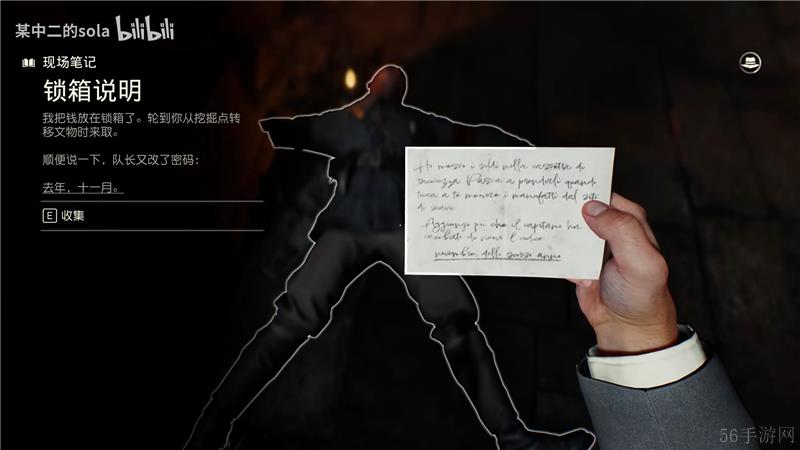 某中二的sola bilibili
现场笔记
锁箱说明
我把钱放在锁箱了。轮到你从挖掘点转
移文物时来取。
顺便说一下，队长又改了密码：
去年，十一月。
E 收集
Ho messo i soldi nella cassetta di
sicurezza. Passa a prenderli quando
tocca a te muovere i manufatti dal sito
di scavi.
Aggiungo poi che il capitano ha
cambiato di nuovo il codice:
novembre, dello scorso anno
56手游网